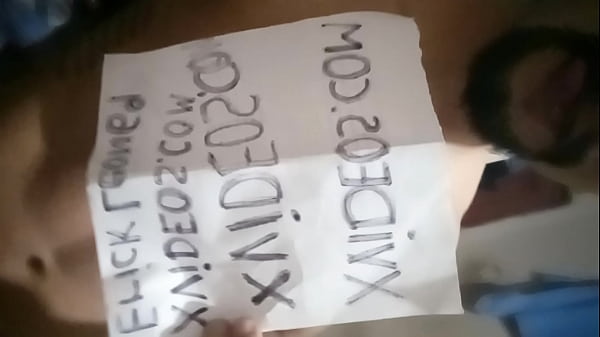 ERICK
XVIDEOS.COM
XVIDEOS.COM
XVIDEOS.COM